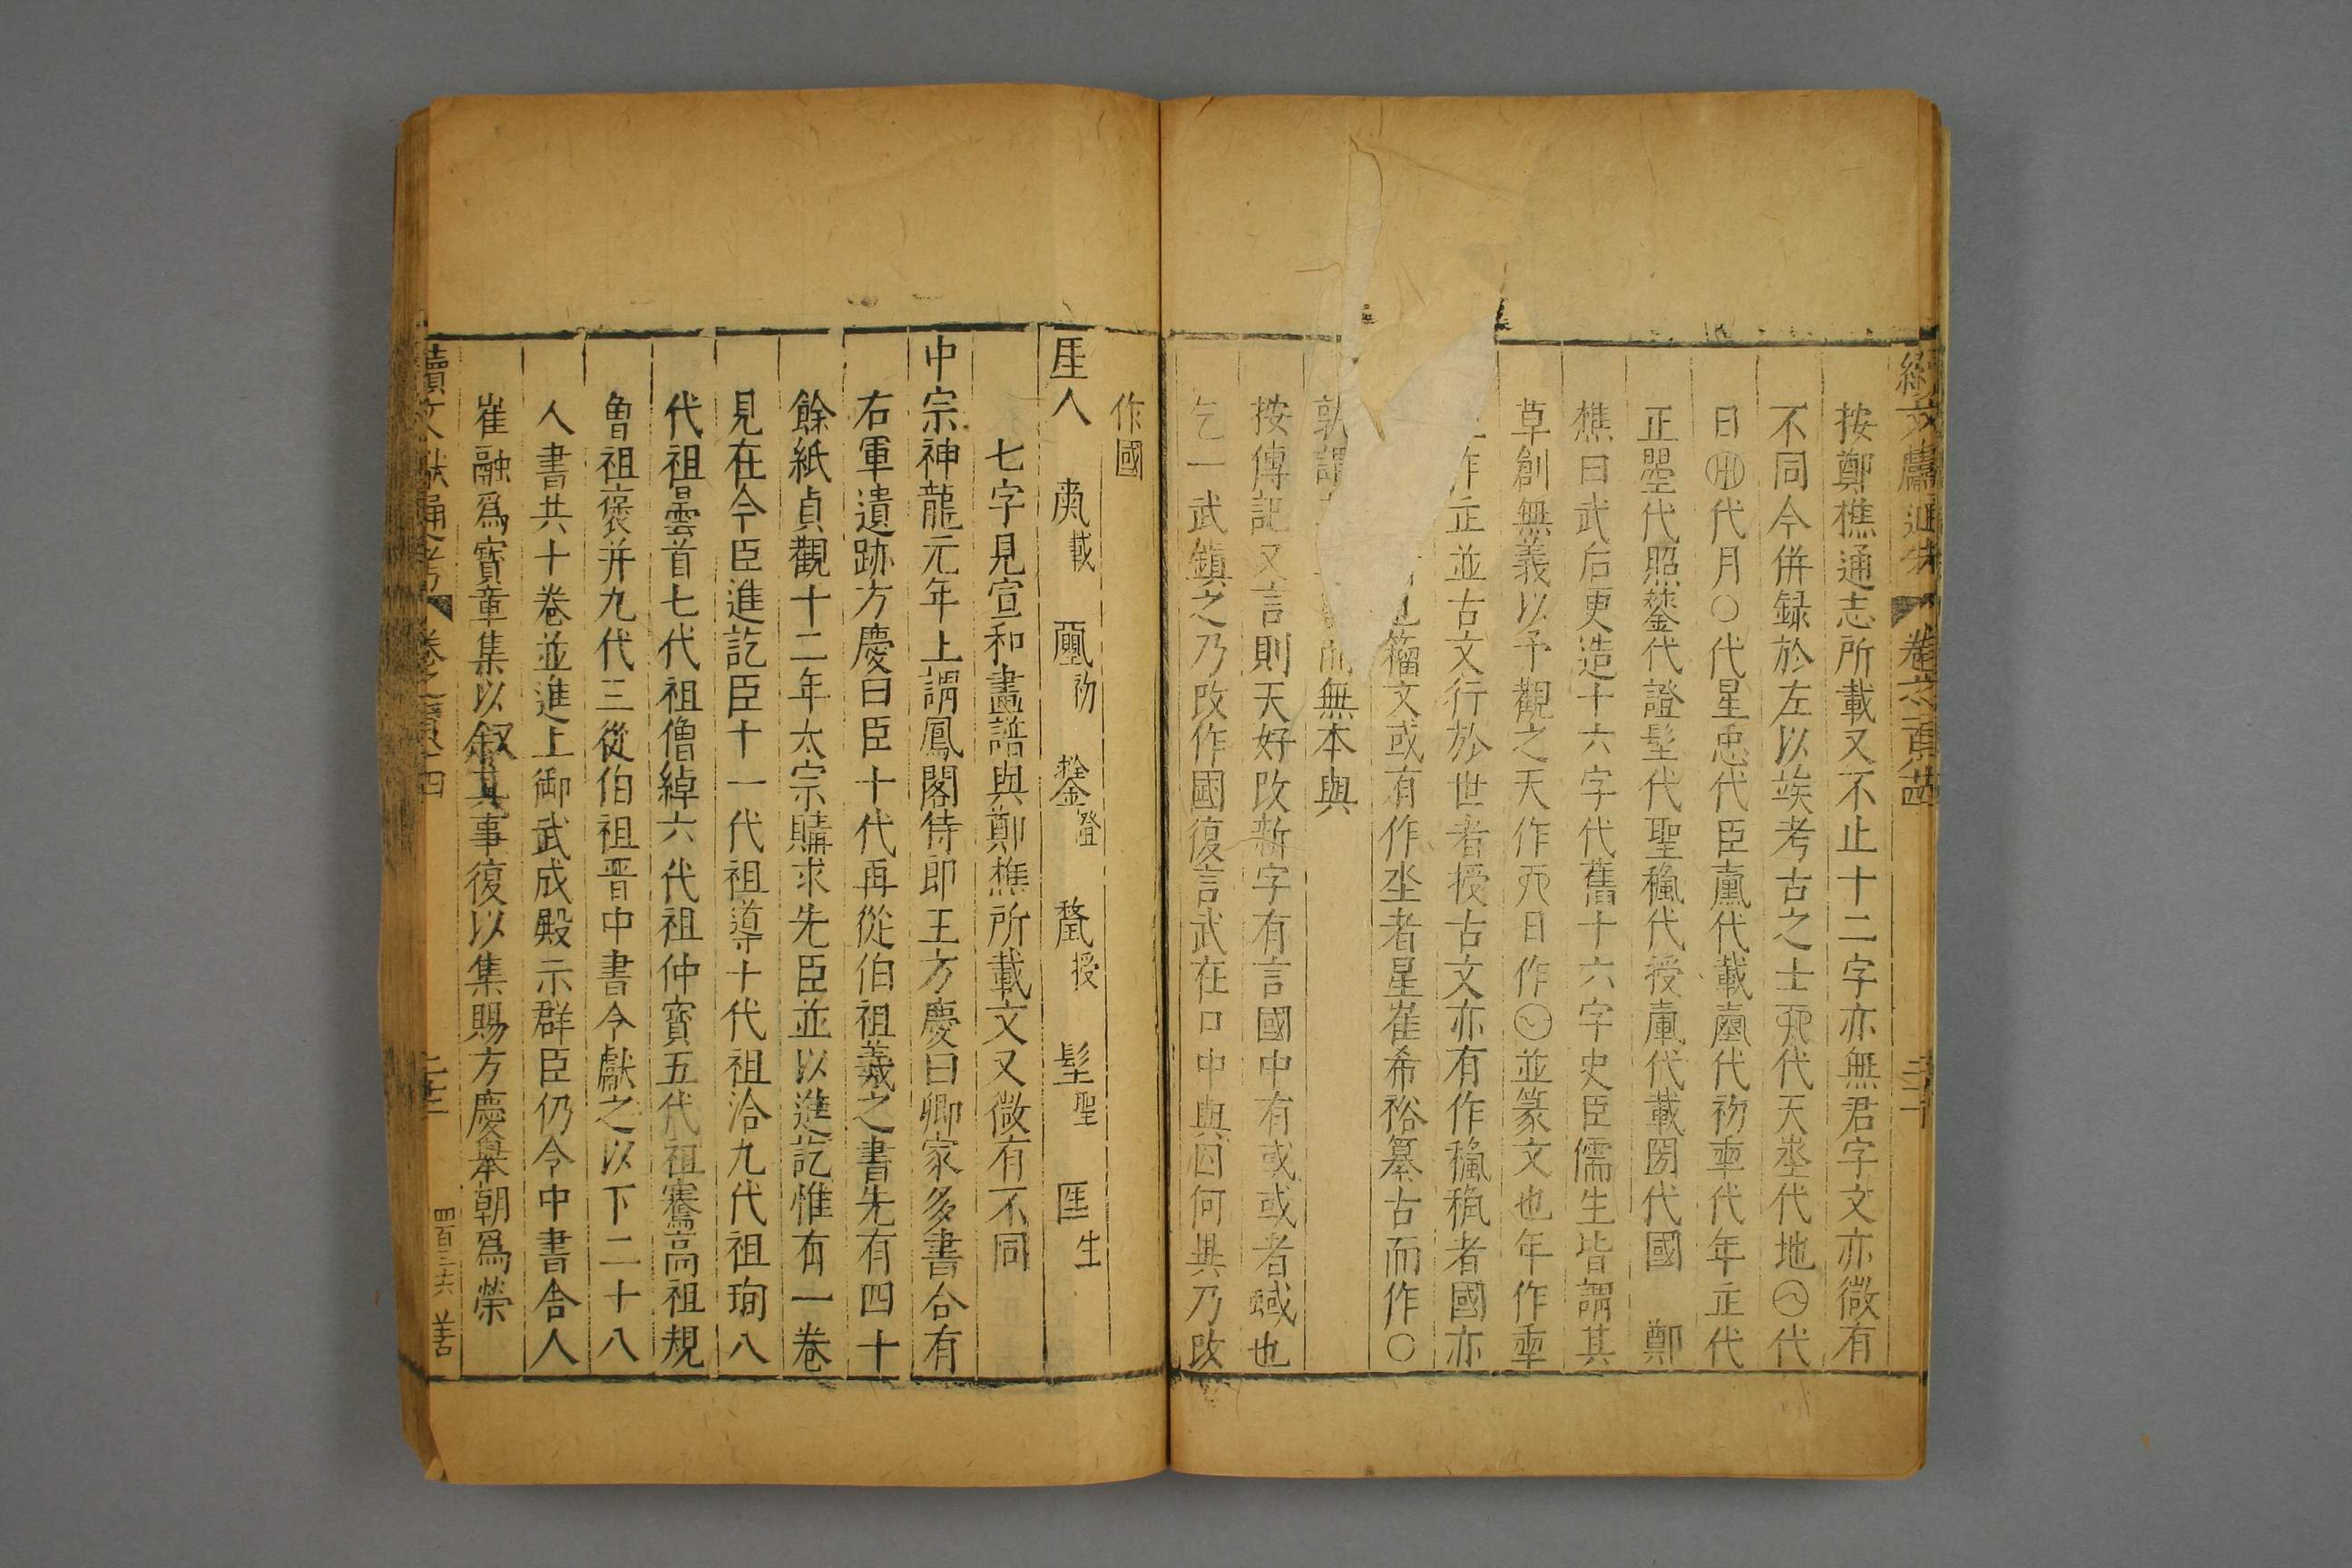 續文獻通考 卷之一百八十四
按鄭樵通志所載又不止十二字亦無君字文亦微有
不同今併録於左以俟考古之士𠑺代天埊代地代
日代月〇代星𢘑代臣代載代初代年代
正曌代照代證代聖代授代載圀代國 鄭
樵曰武后更造十六字代舊十六字史臣儒生皆謂其
草創無義以予觀之天作𠑺日作並篆文也年作
作正並古文行於世者授古文亦有作者國亦
籀文或有作坐者星崔希裕纂古而作〇
敦 無本與
按傳記又言則天好改新字有言國中有或或者蜮也
乞一武鎮之乃改作國復言武在口中與囚何異乃改
作國
人 載 初 證 授 聖 生
七字見宣和畫譜與鄭樵所載文又微有不同
中宗神龍元年上謂鳳閣侍郎王方慶曰卿家多書合有
右軍遺跡方慶曰臣十代再從伯祖羲之書先有四十
餘紙貞觀十二年太宗購求先臣並以進訖惟有一巻
見在今臣進訖臣十一代祖導十代祖洽九代祖珣八
代祖曇首七代祖僧綽六代祖仲寳五代祖騫高祖規
曾祖褒并九代三從伯祖晋中書令獻之以下二十八
人書共十巻並進上御武成殿示群臣仍令中書舍人
崔融爲寳章集以叙其事復以集賜方慶舉朝爲榮
續文獻通考 卷之一百八十四
四百三六 善